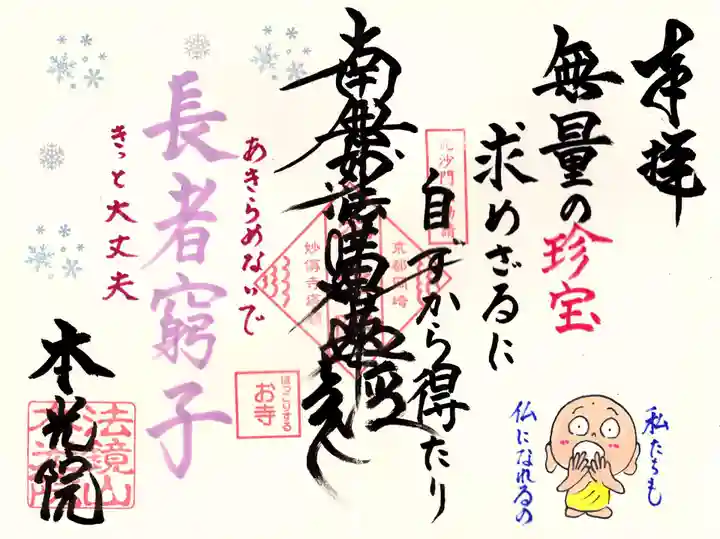 奉拝
無量の珍宝
求めざるに
自ずから得たり
南無妙法蓮華経
あきらめないで
長者窮子
きっと大丈夫
本光院
京都岡崎
ほっこりする
お寺
法鏡山
私たちも
仏になれるの